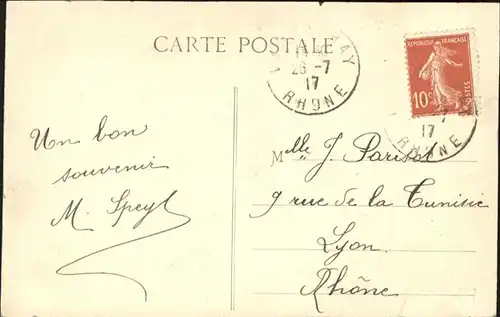 CARTE POSTALE
26 -7
17
RHONE
REPUBLIQUE FRANÇAISE
10c
POSTES
-7
17
RHONE
Un bon
souvenir
M. Speyl
Mlle J. Parisot
9 rue de la Tunisie
Lyon
Rhône